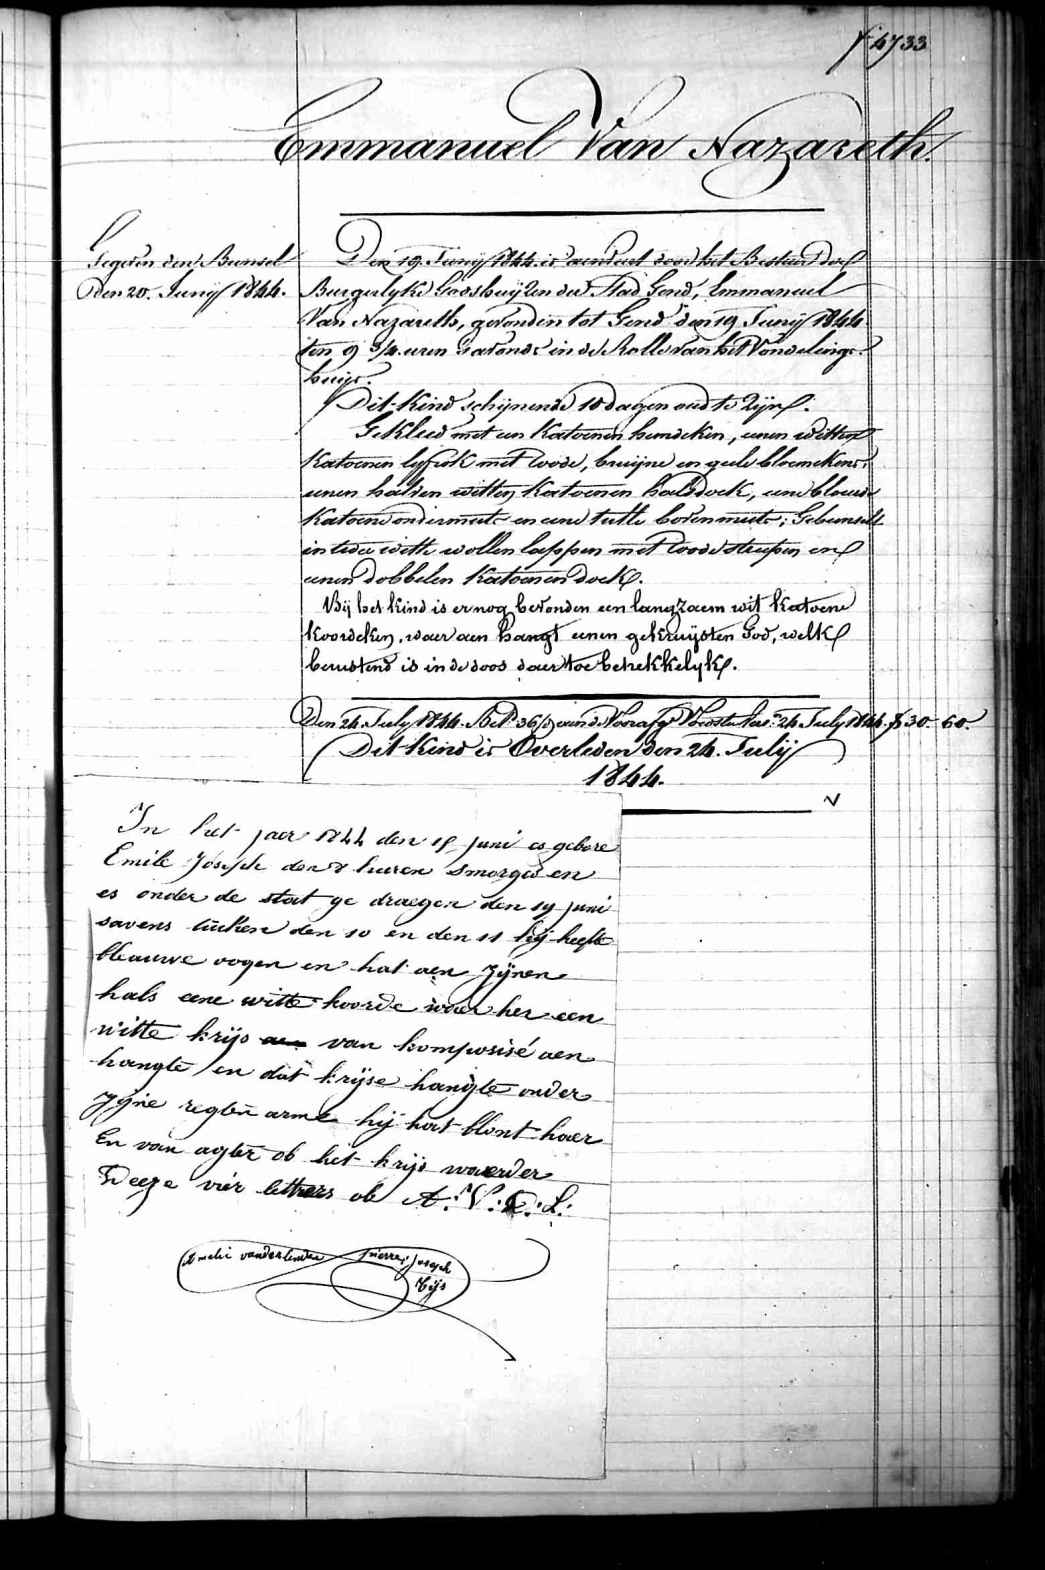 f° 4733
Emmanuel Van Nazareth.
Gegeven den Bunsel
den 20. Junij 1844.
Den 19. Junij 1844 is aenveert door het Bestuer der
Burgerlyke Godshuijzen der Stad Gend, Emmanuel
Van Nazareth, gevonden tot Gend den 19 Junij 1844
ten 9 3/4 uren 's avonds in de Rolle van het Vondelings-
huijs.
Dit kind schijnende 10 dagen oud te zijn.
Gekleed met een katoenen hemdeken, eenen witten
katoenen lyfrok met roode, bruijne en geele bloemekens,
eenen halven witten katoenen halsdoek, eene blouwe
katoene ondermuts en eene tulle bovenmuts; Gebunselt
in twee witte wollen lappen met roode streepen en
eenen dobbelen katoenen doek.
Bij het kind is er nog bevonden een langzaem wit katoene
koordeken, waer aen hangt eenen gekruijsten God, welk
berustend is in de doos daer toe betrekkelyk.
Den 24. July 1844. 24 July 1844. f 30.- 60.
Dit Kind is Overleden den 24. Julij
1844.
In het jaer 1844 den 18 juni es gebore
Emile Joseph den 8 huren smorges en
es onder de stat ge draegen den 19 juni
savens tucken den 10 en den 11 hij heeft
blauwe oogen en hat aen zijnen
hals eene witte koorde waer her een
witte krijs van komporisé aen
hangte en dat krijse hangte onder
zijne regten arme hij hat blont haer
En van agter ob het krijs waerder
Deeze vier letters ob A: V: D: L:
Amelie vanderlinden pierre joseph
tijs